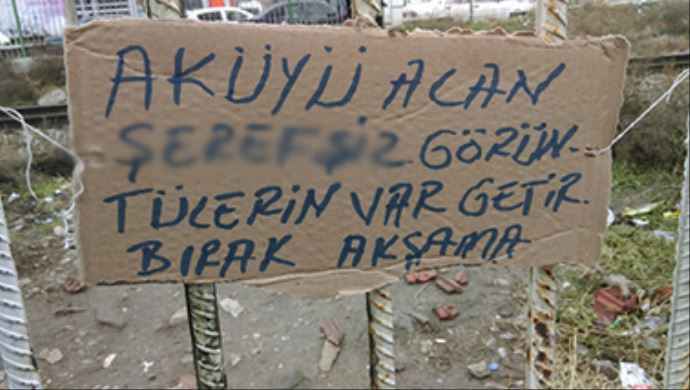 AKÜYÜ ALAN
ŞEREFSİZ GÖRÜN-
TÜLERİN VAR GETİR.
BIRAK AKŞAMA